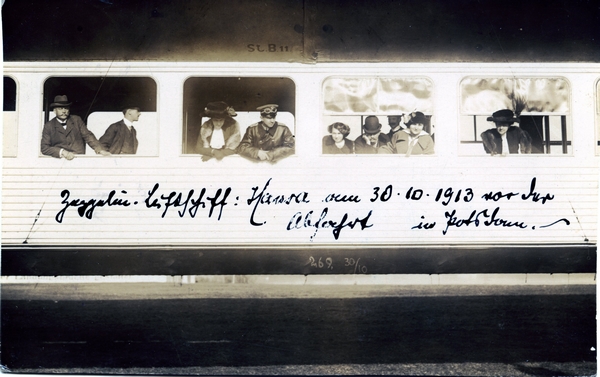 St. B 11
Zeppelin-Luftschiff: Hansa am 30.10.1913 vor der
Abfahrt in Potsdam.
269 30/10